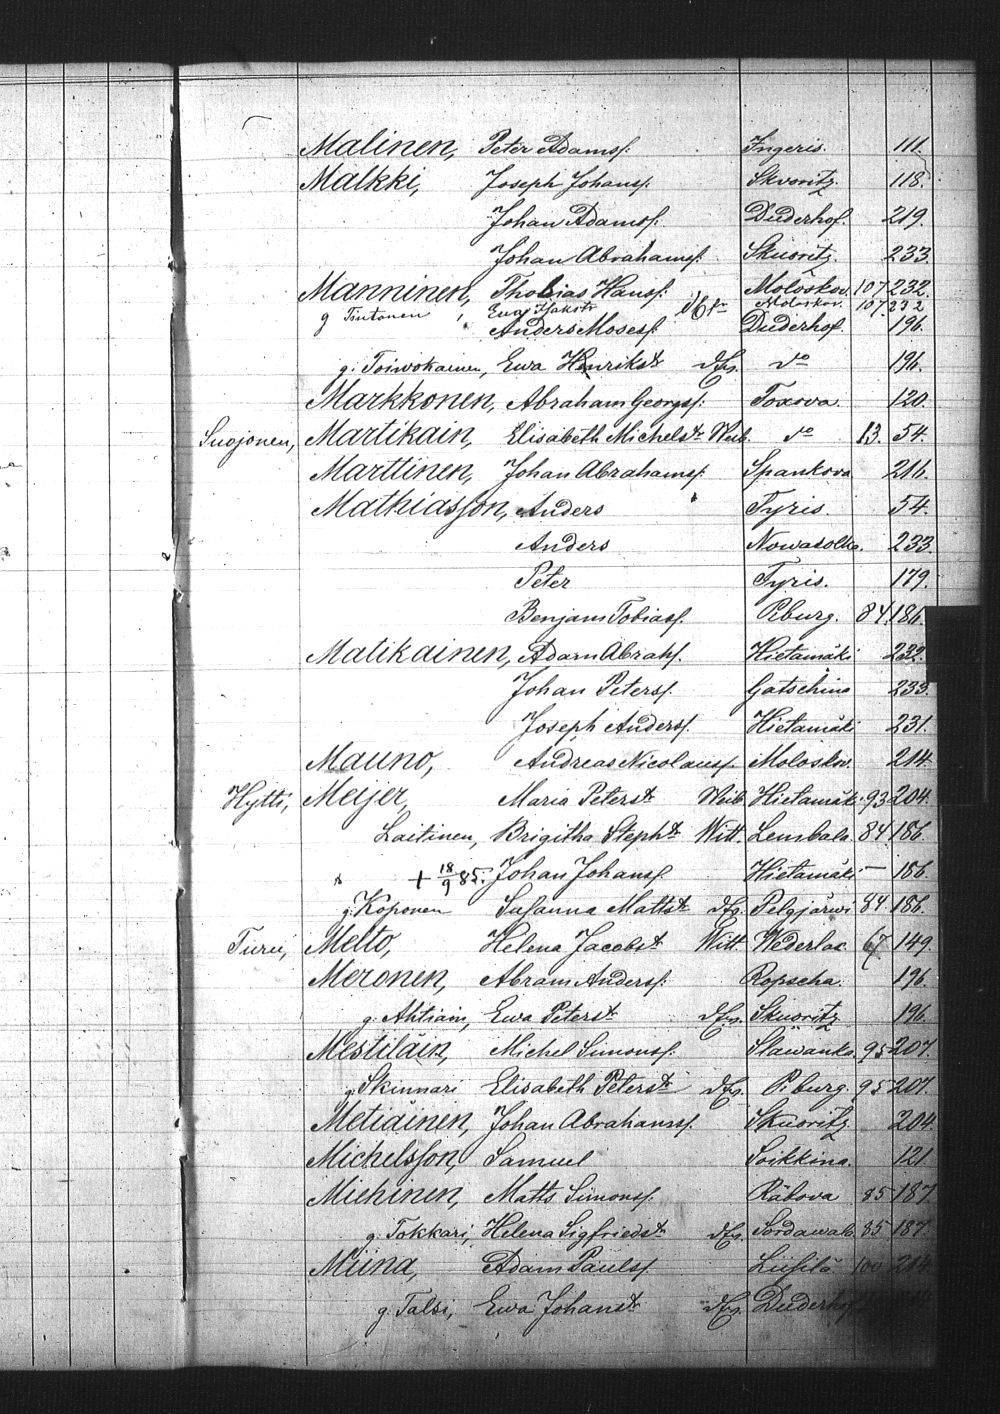 Malinen, Peter Adamsf. Ingeris. 111.
Malkki, Joseph Johansf. Skvoritz 118.
Johan Adamsf. Duderhof. 219.
Johan Abrahamsf. Skuoritz. 233.
Manninen, Thobias Hansf. Moloskov. 107. 232.
g Tintonen, Ewa Jakobs Moloskov. 107. 232
Anders Mosesf. Duderhof. 196.
g. Toiwokainen, Ewa Henriks dr do 196.
Markkonen, Abraham Georgsf. Toxova. 120.
Suojonen, Martikain, Elisabeth Michels dr Weib. do 13. 54.
Marttinen, Johan Abrahamsf. Spankova 216.
Mathiasson, Anders Tyris. 54.
Anders Nowasolka. 233.
Peter Tyris. 179.
Benjam Tobiasf. P.burg. 84. 186.
Matikainen, Adam Abrahf. Hietamäki 232.
Johan Petersf. Gatschina 233.
Joseph Andersf. Hietamäki 231.
Mauno, Andreas Nicolausf. Moloskov. 214.
Hytti, Meyer, Maria Peters dr Weib. Hietamäk. 93 204.
Laitinen, Brigitha Steph dr Witt. Lembala. 84. 186.
+ 18/9 85. Johan Johansf. Hietamäki — 186.
g. Koponen Susanna Matts dr Pelgjärwi 84 186.
Turu, Melto, Helena Jacobs dr Witt. Wederlax 67 149.
Meronen, Abram Andersf. Ropscha. 196.
g. Ahtiain, Ewa Peters dr Skuoritz 196.
Mestiläin, Michel Simonsf. Slawanka 95 207.
g. Skinnari Elisabeth Peters dr P.burg. 95 207.
Metiäinen, Johan Abrahamsf. Skuoritz 204.
Michelsson, Samuel Soikkina. 121
Miehinen, Matts Simonsf. Räbova 85 187.
g. Tokkari, Helena Sigfrieds dr Sordawala 85 187.
Miina, Adam Paulsf. Liissilä 100 214.
g. Talsi, Ewa Johans dr Duderhof